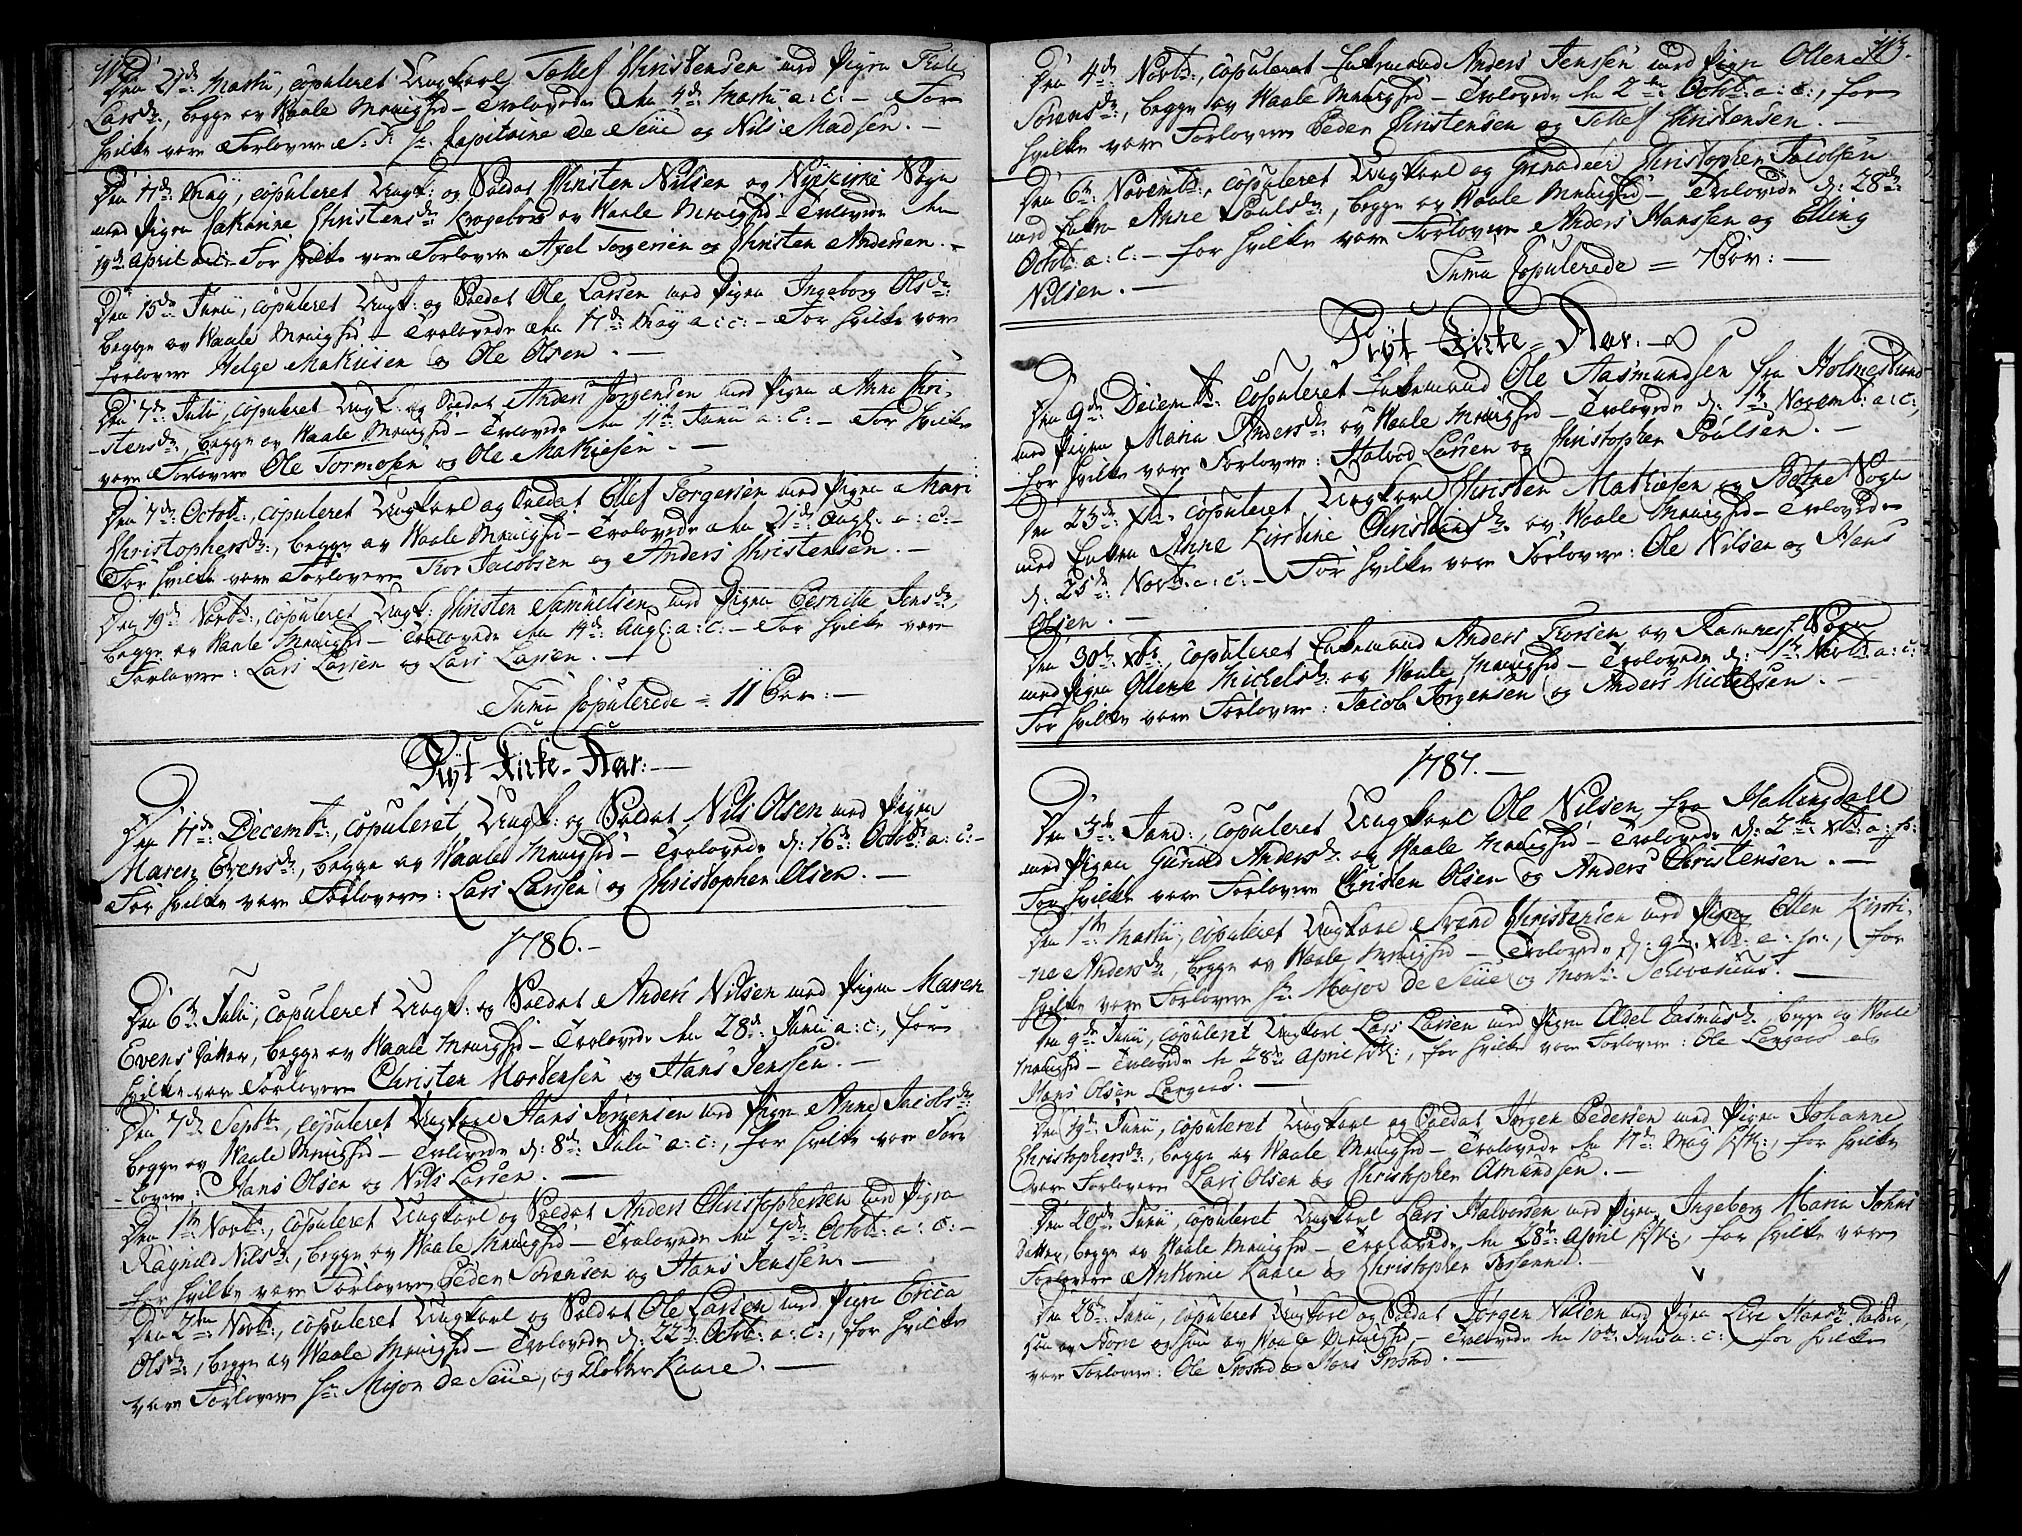 Den 21de: Martii, copuleret Ungkarl Tollef Christensen med Pigen
Larsdr:, begge av Waale Menighed – Trolovede den 4de Martii a: c: – For
hvilke vare Forlovere S. T. Hr. Capitaine de Seüe og Nils Madsen. –
Den 17de May, copuleret Ungk: og Soldat Christen Nilsen av Nykirke Sogn
med Pigen Cathrine Christensdr: av Waale Menighed – Trolovede den
19de April a: c: – For hvilke vare Forlovere Axel Torgersen og Christen Andersen. –
Den 15de Junii, copuleret Ungk: og Soldat Ole Larsen med Pigen Ingeborg Olsdr:
begge av Waale Menighed – Trolovede den 17de May a: c: – For hvilke vare
Forlovere Helge Mathisen og Ole Olsen. –
Den 7de Julii, copuleret Ungk: og Soldat Anders Jörgensen med Pigen Anne Chri-
-stensdr:, begge av Waale Menighed – Trolovede den 11te Junii a: c: – For hvilke
vare Forlovere Ole Tormosen og Ole Mathiesen. –
Den 7de: Octobr:, copuleret Ungkarl og Soldat Ellef Torgersen med Pigen Mari
Christophersdr:, begge av Waale Menighed – Trolovede den 21de: Aug: a: c: –
For hvilke vare Forlovere Tor Jacobsen og Anders Christensen. –
Den 19de Novbr:, copuleret Ungk: Christen Samuelsen med Pigen Pernille Jensdr,
begge av Waale Menighed – Trolovede den 14de: Aug: a: c: – For hvilke vare
Forlovere: Lars Larsen og Lars Larsen. –
Summa Copulerede = 11 Par: –
Nyt Kirke-Aar: –
Den 17de: Decembr:, copuleret Ungk: og Soldat Nils Olsen med Pigen
Maren Evensdr:, begge av Waale Menighed – Trolovede d: 16de: Octobr: a: c: –
For hvilke vare Forlovere: Lars Larssen og Christopher Olsen. –
1786. –
Den 6te Julii, copuleret Ungk: og Soldat Anders Nilsen med Pigen Maren
Evens Datter, begge av Waale Menighed – Trolovede den 28de: Junii a: c:, for
hvilke vare Forlovere Christen Mortensen og Hans Jenssen. –
Den 7de Septbr:, copuleret Ungkarl Hans Jörgensen med Pigen Anne Jacobsdr:
begge av Waale Menighed – Trolovede d: 8de: Julii a: c:, for hvilke vare For-
-lovere: Hans Olsen og Nils Larsen. –
Den 1te Novbr:, copuleret Ungkarl og Soldat Anders Christophersen med Pigen
Ragnild Nilsdr:, begge av Waale Menighed – Trolovede den 7de: Octobr: a: c: –
for hvilke vare Forlovere Peder Sörensen og Hans Jenssen. –
Den 2den: Novbr:, copuleret Ungkarl og Soldat Ole Larsen med Pigen Erica
Olsdr:, begge av Waale Menighed – Trolovede d: 22de: Octobr: a: c:, for hvilke
vare Forlovere Hr: Major de Seüe, og Klokker Kaare. –
113.
Den 4de Novbr:, copuleret Enkemand Anders Jensen med Pigen Ollene
Sörensdr:, begge av Waale Menighed – Trolovede den 2den Octobr: a: c:, for
hvilke vare Forlovere Peder Christensen og Tollef Christensen. –
Den 6te: Novembr:, copuleret Ungkarl og Grenadeer Christopher Jacobsen
med Enken Anne Poulsdr:, begge av Waale Menighed – Trolovede d: 28de:
Octobr: a: c: – for hvilke vare Forlovere Anders Hanssen og Elling
Nilsen. –
Summa Copulerede = 7 Par: –
Nyt Kirke-Aar: –
Den 9de Decembr: copuleret Enkemand Ole Aasmundsen fra Holmestrand
med Pigen Maria Andersdr: av Waale Menighed – Trolovede d: 1te Novembr: a: c:,
for hvilke vare Forlovere: Halvod Larsen og Christopher Poulsen. –
Den 23de: Xbr:, copuleret Ungkarl Christen Mathiesen av Botne Sogn
med Enken Anne Kirstine Christensdr: av Waale Menighed – Trolovede
d: 25de Novbr: a: c: – For hvilke vare Forlovere: Ole Nilsen og Hans
Olsen. –
Den 30te: Xbr:, copuleret Enkemand Anders Torsen av Ramness Sogn
med Pigen Ollene Michelsdr: av Waale Menighed – Trolovede d: 11te Novbr: a: c:
For hvilke vare Forlovere: Jacob Jörgensen og Anders Michelsen. –
1787. –
Den 3de: Janr:, copuleret Ungkarl Ole Nilsen, fra Hallingdall
med Pigen Gunild Andersdr: av Waale Menighed – Trolovede d: 2den Xbr: a: p:
For hvilke vare Forlovere Christen Olsen og Anders Christensen. –
Den 1te: Martii, copuleret Ungkarl Svend Christensen med Pigen Ellen Kirsti-
-ne Andersdr:, begge av Waale Menighed – Trolovede d: 9de Xbr: a: p:, for
hvilke vare Forlovere Hr: Major de Seüe og Monsr: Schwenius. –
Den 9de Junii, copuleret Ungkarl Lars Larsen med Pigen Abel Rasmusdr:, begge av Waale
Menighed – Trolovede den 28de April, for hvilke vare Forlovere: Ole Langaas og
Hans Olsen Langaas. –
Den 19de: Junii, copuleret Ungkarl og Soldat Jörgen Pedersen med Pigen Johanne
Christophersdr:, begge av Waale Menighed – Trolovede den 17de May, for hvilke
vare Forlovere Lars Olsen og Christopher Amundsen. –
Den 20de: Junii, copuleret Ungkarl Lars Halvorsen med Pigen Ingeborg Maria Johns
Datter, begge av Waale Menighed – Trolovede den 28de: April, for hvilke vare
Forlovere Anthonie Kaare og Christopher. –
Den 28de: Junii, copuleret Ungkarl og Soldat Jörgen Nilsen med Pigen Live Hans Datter,
han av Borre og hun av Waale Menighed, – Trolovede den 10de: Junii a: c:, for hvilke
vare Forlovere: Ole og Hans. –